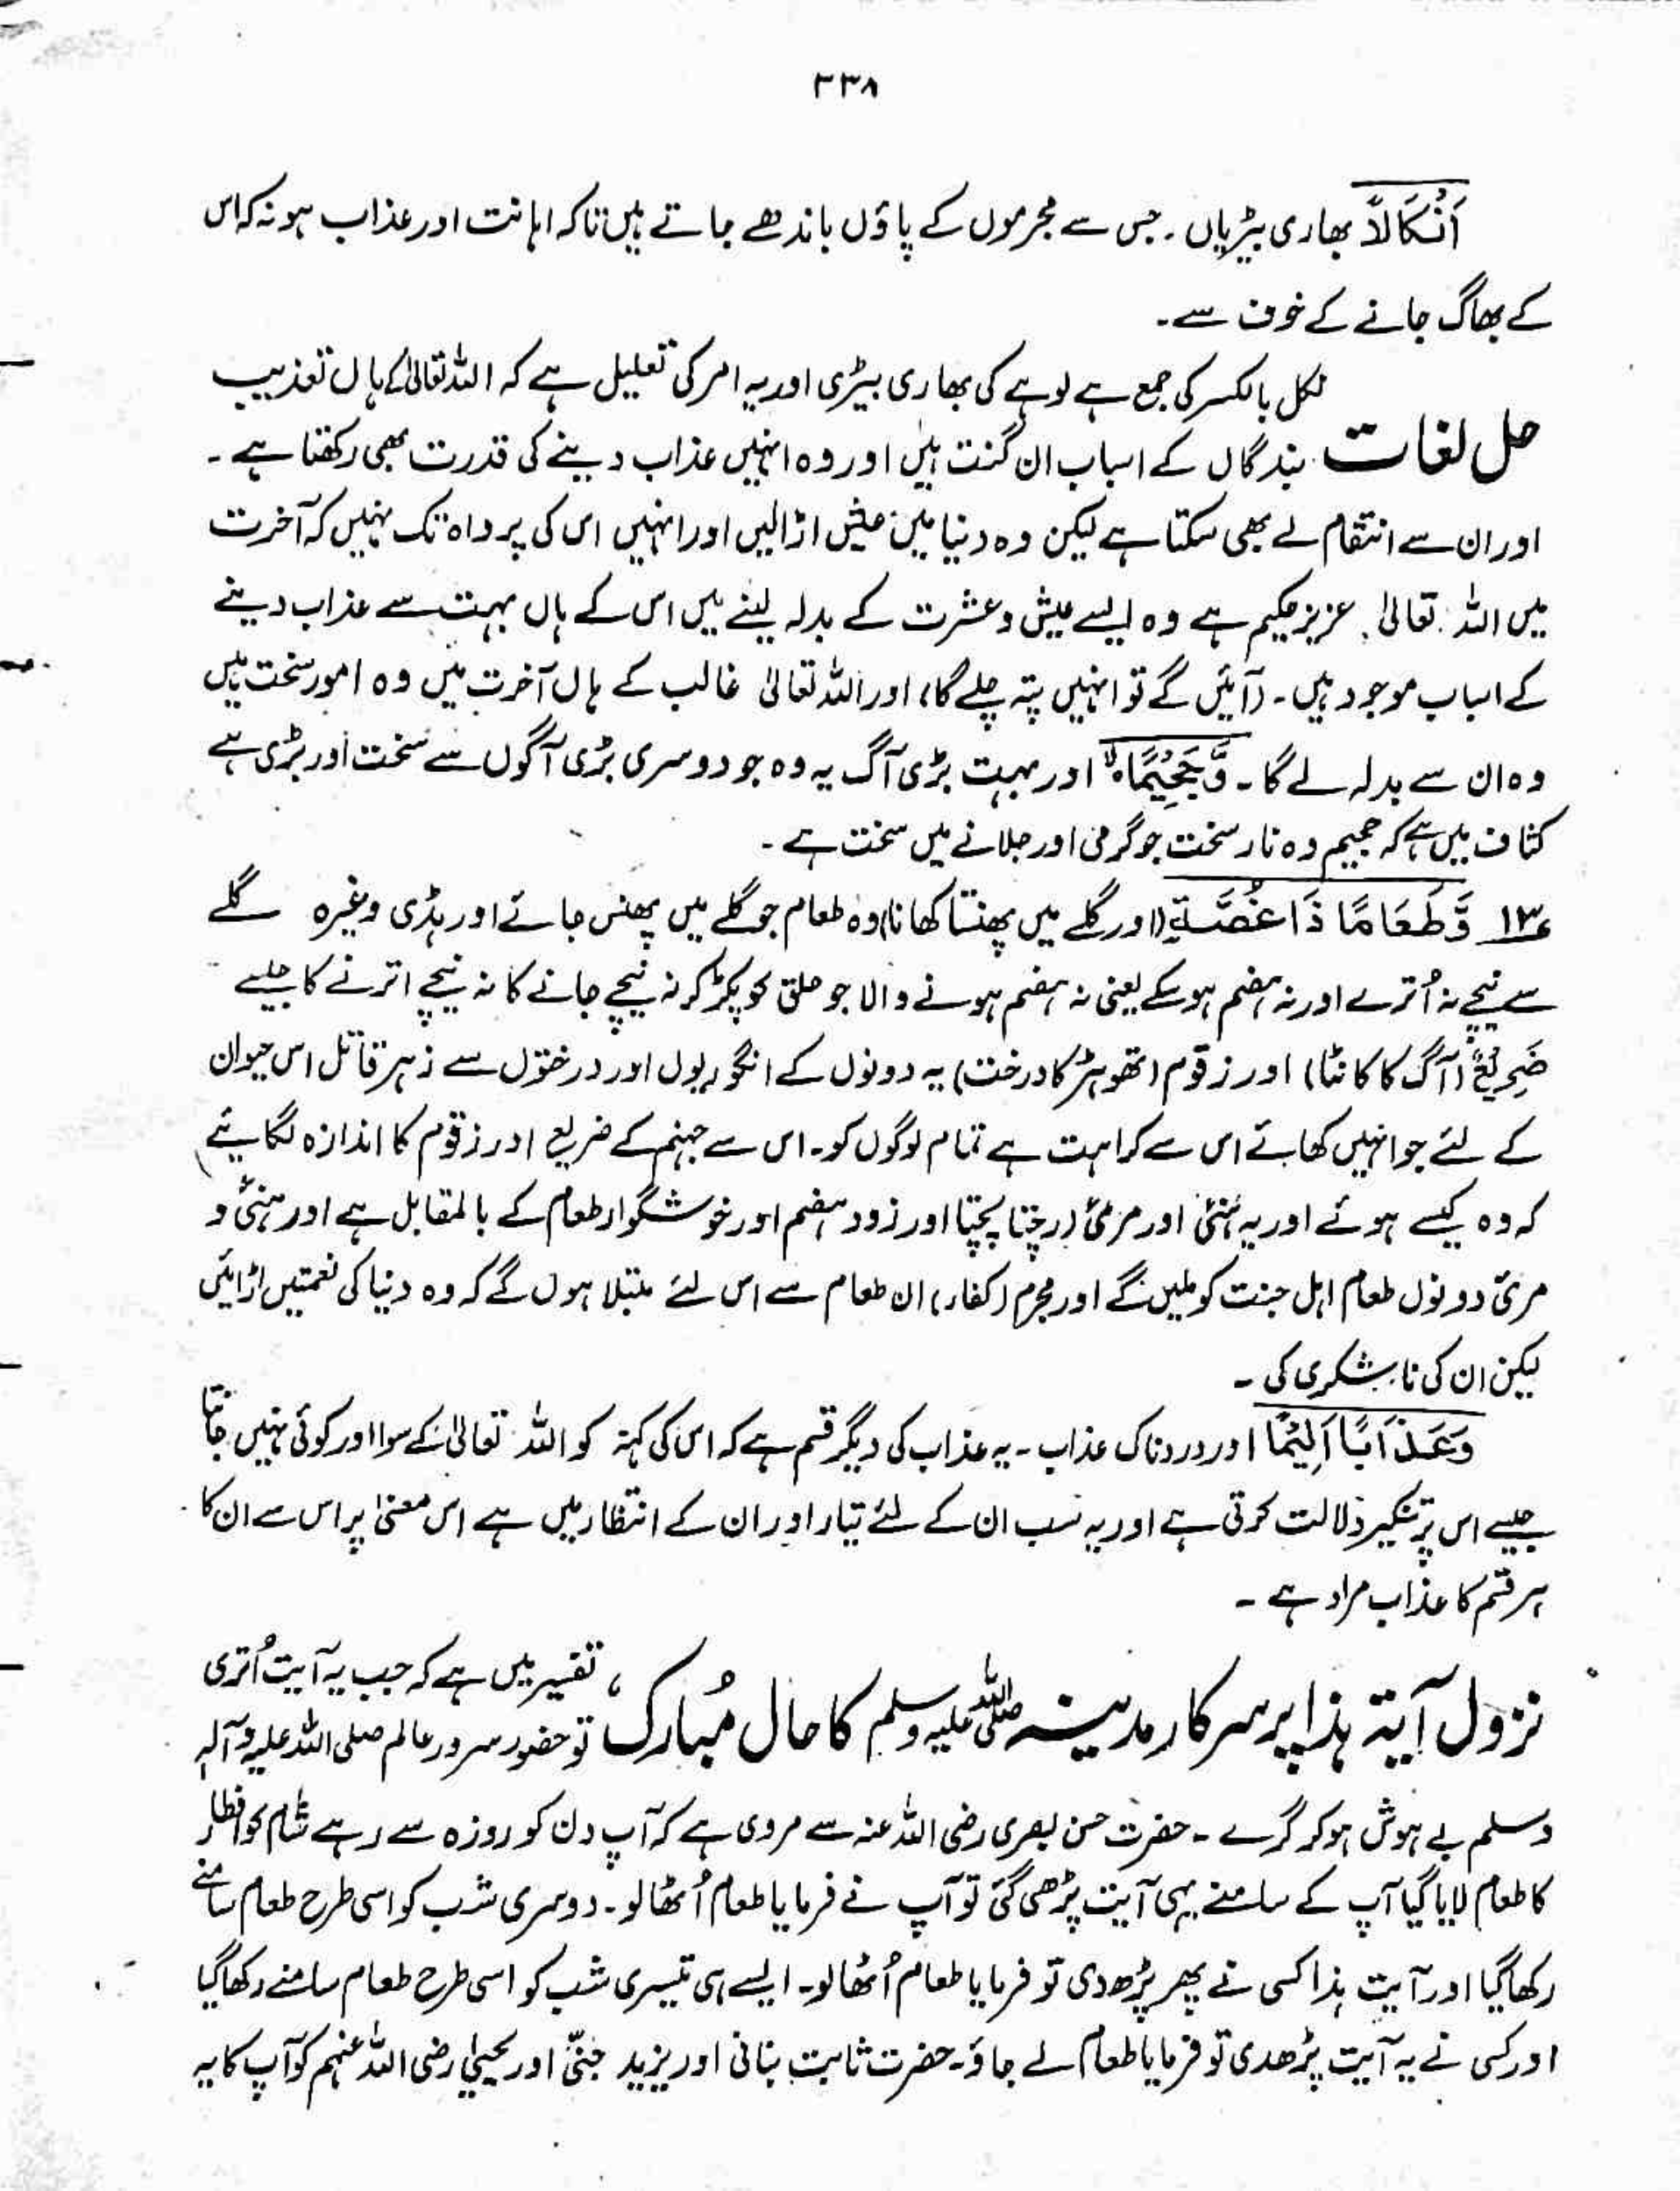 ۳۳۸
اَنْكَالًا بھاری بیڑیاں۔ جس سے مجرموں کے پاؤں باندھے جاتے ہیں تاکہ اہانت اور عذاب ہو نہ کہ اس
کے بھاگ جانے کے خوف سے۔
حل لغات
نکل بالکسر کی جمع ہے لوہے کی بھاری بیڑی اور یہ امر کی تعلیل ہے کہ اللہ تعالیٰ کے ہاں تعذیب
بندگاں کے اسباب ان گنت ہیں اور وہ انہیں عذاب دینے کی قدرت بھی رکھتا ہے۔
اور ان سے انتقام لے بھی سکتا ہے لیکن وہ دنیا میں عیش اڑالیں اور انہیں اس کی پرواہ تک نہیں کہ آخرت
میں اللہ تعالیٰ عزیز حکیم ہے وہ ایسے عیش وعشرت کے بدلہ لینے میں اس کے ہاں بہت سے عذاب دینے
کے اسباب موجود ہیں۔ (آئیں گے تو انہیں پتہ چلے گا) اور اللہ تعالیٰ غالب کے ہاں آخرت میں وہ امور سخت ہیں
وہ ان سے بدلہ لے گا۔ وَّجَحِيْمًاۙ اور بہت بڑی آگ یہ وہ جو دوسری بڑی آگوں سے سخت اور بڑی ہے
کشاف میں ہے کہ جحیم وہ نار سخت جو گرمی اور جلانے میں سخت ہے۔
۱۳ وَّطَعَامًا ذَا غُصَّةٍ (اور گلے میں پھنستا کھانا) وہ طعام جو گلے میں پھنس جائے اور ہڈی وغیرہ گلے
سے نیچے نہ اُترے اور نہ ہضم ہوسکے یعنی نہ ہضم ہونے والا جو حلق کو پکڑ کر نہ نیچے جانے کا نہ نیچے اترنے کا جیسے
ضَرِیْعٌ (آگ کا کانٹا) اور زقوم (تھوہڑ کا درخت) یہ دونوں کے انگوریوں اور درختوں سے زہر قاتل اس حیوان
کے لئے جو انہیں کھائے اس سے کراہت ہے تمام لوگوں کو۔ اس سے جہنم کے ضریع اور زقوم کا اندازہ لگائیے)
کہ وہ کیسے ہوئے اور یہ ہنئی اور مرئی (رچتا پچتا اور زود ہضم اور خوشگوار طعام کے بالمقابل ہے اور ہنئی و
مرئی دونوں طعام اہل جنت کو ملیں گے اور مجرم (کفار) ان طعام سے اس لئے مبتلا ہوں گے کہ وہ دنیا کی نعمتیں اڑائیں
لیکن ان کی ناشکری کی۔
وَعَذَابًا اَلِیْمًا اور دردناک عذاب۔ یہ عذاب کی دیگر قسم ہے کہ اس کی کنہ کو اللہ تعالیٰ کے سوا اور کوئی نہیں جانتا
جیسے اس پر تنکیر دلالت کرتی ہے اور یہ سب ان کے لئے تیار اور ان کے انتظار میں ہے اس معنیٰ پر اس سے ان کا
ہر قسم کا عذاب مراد ہے۔
نزول آیۃ ہذا پر سرکار مدینہ صلی اللہ علیہ وسلم کا حال مُبارک ،
تفسیر میں ہے کہ جب یہ آیت اُتری
تو حضور سرور عالم صلی اللہ علیہ وآلہٖ
وسلم بے ہوش ہوکر گرے۔ حضرت حسن بصری رضی اللہ عنہ سے مروی ہے کہ آپ دن کو روزہ سے رہے شام کو افطار
کا طعام لایا گیا آپ کے سامنے یہی آیت پڑھی گئی تو آپ نے فرمایا طعام اُٹھالو۔ دوسری شب کو اسی طرح طعام سامنے
رکھا گیا اور آیت ہذا کسی نے پھر پڑھ دی تو فرمایا طعام اُٹھالو۔ ایسے ہی تیسری شب کو اسی طرح طعام سامنے رکھا گیا
اور کسی نے یہ آیت پڑھدی تو فرمایا طعام لے جاؤ۔ حضرت ثابت بنانی اور یزید ضبّی اور یحییٰ رضی اللہ عنہم کو آپ کا یہ